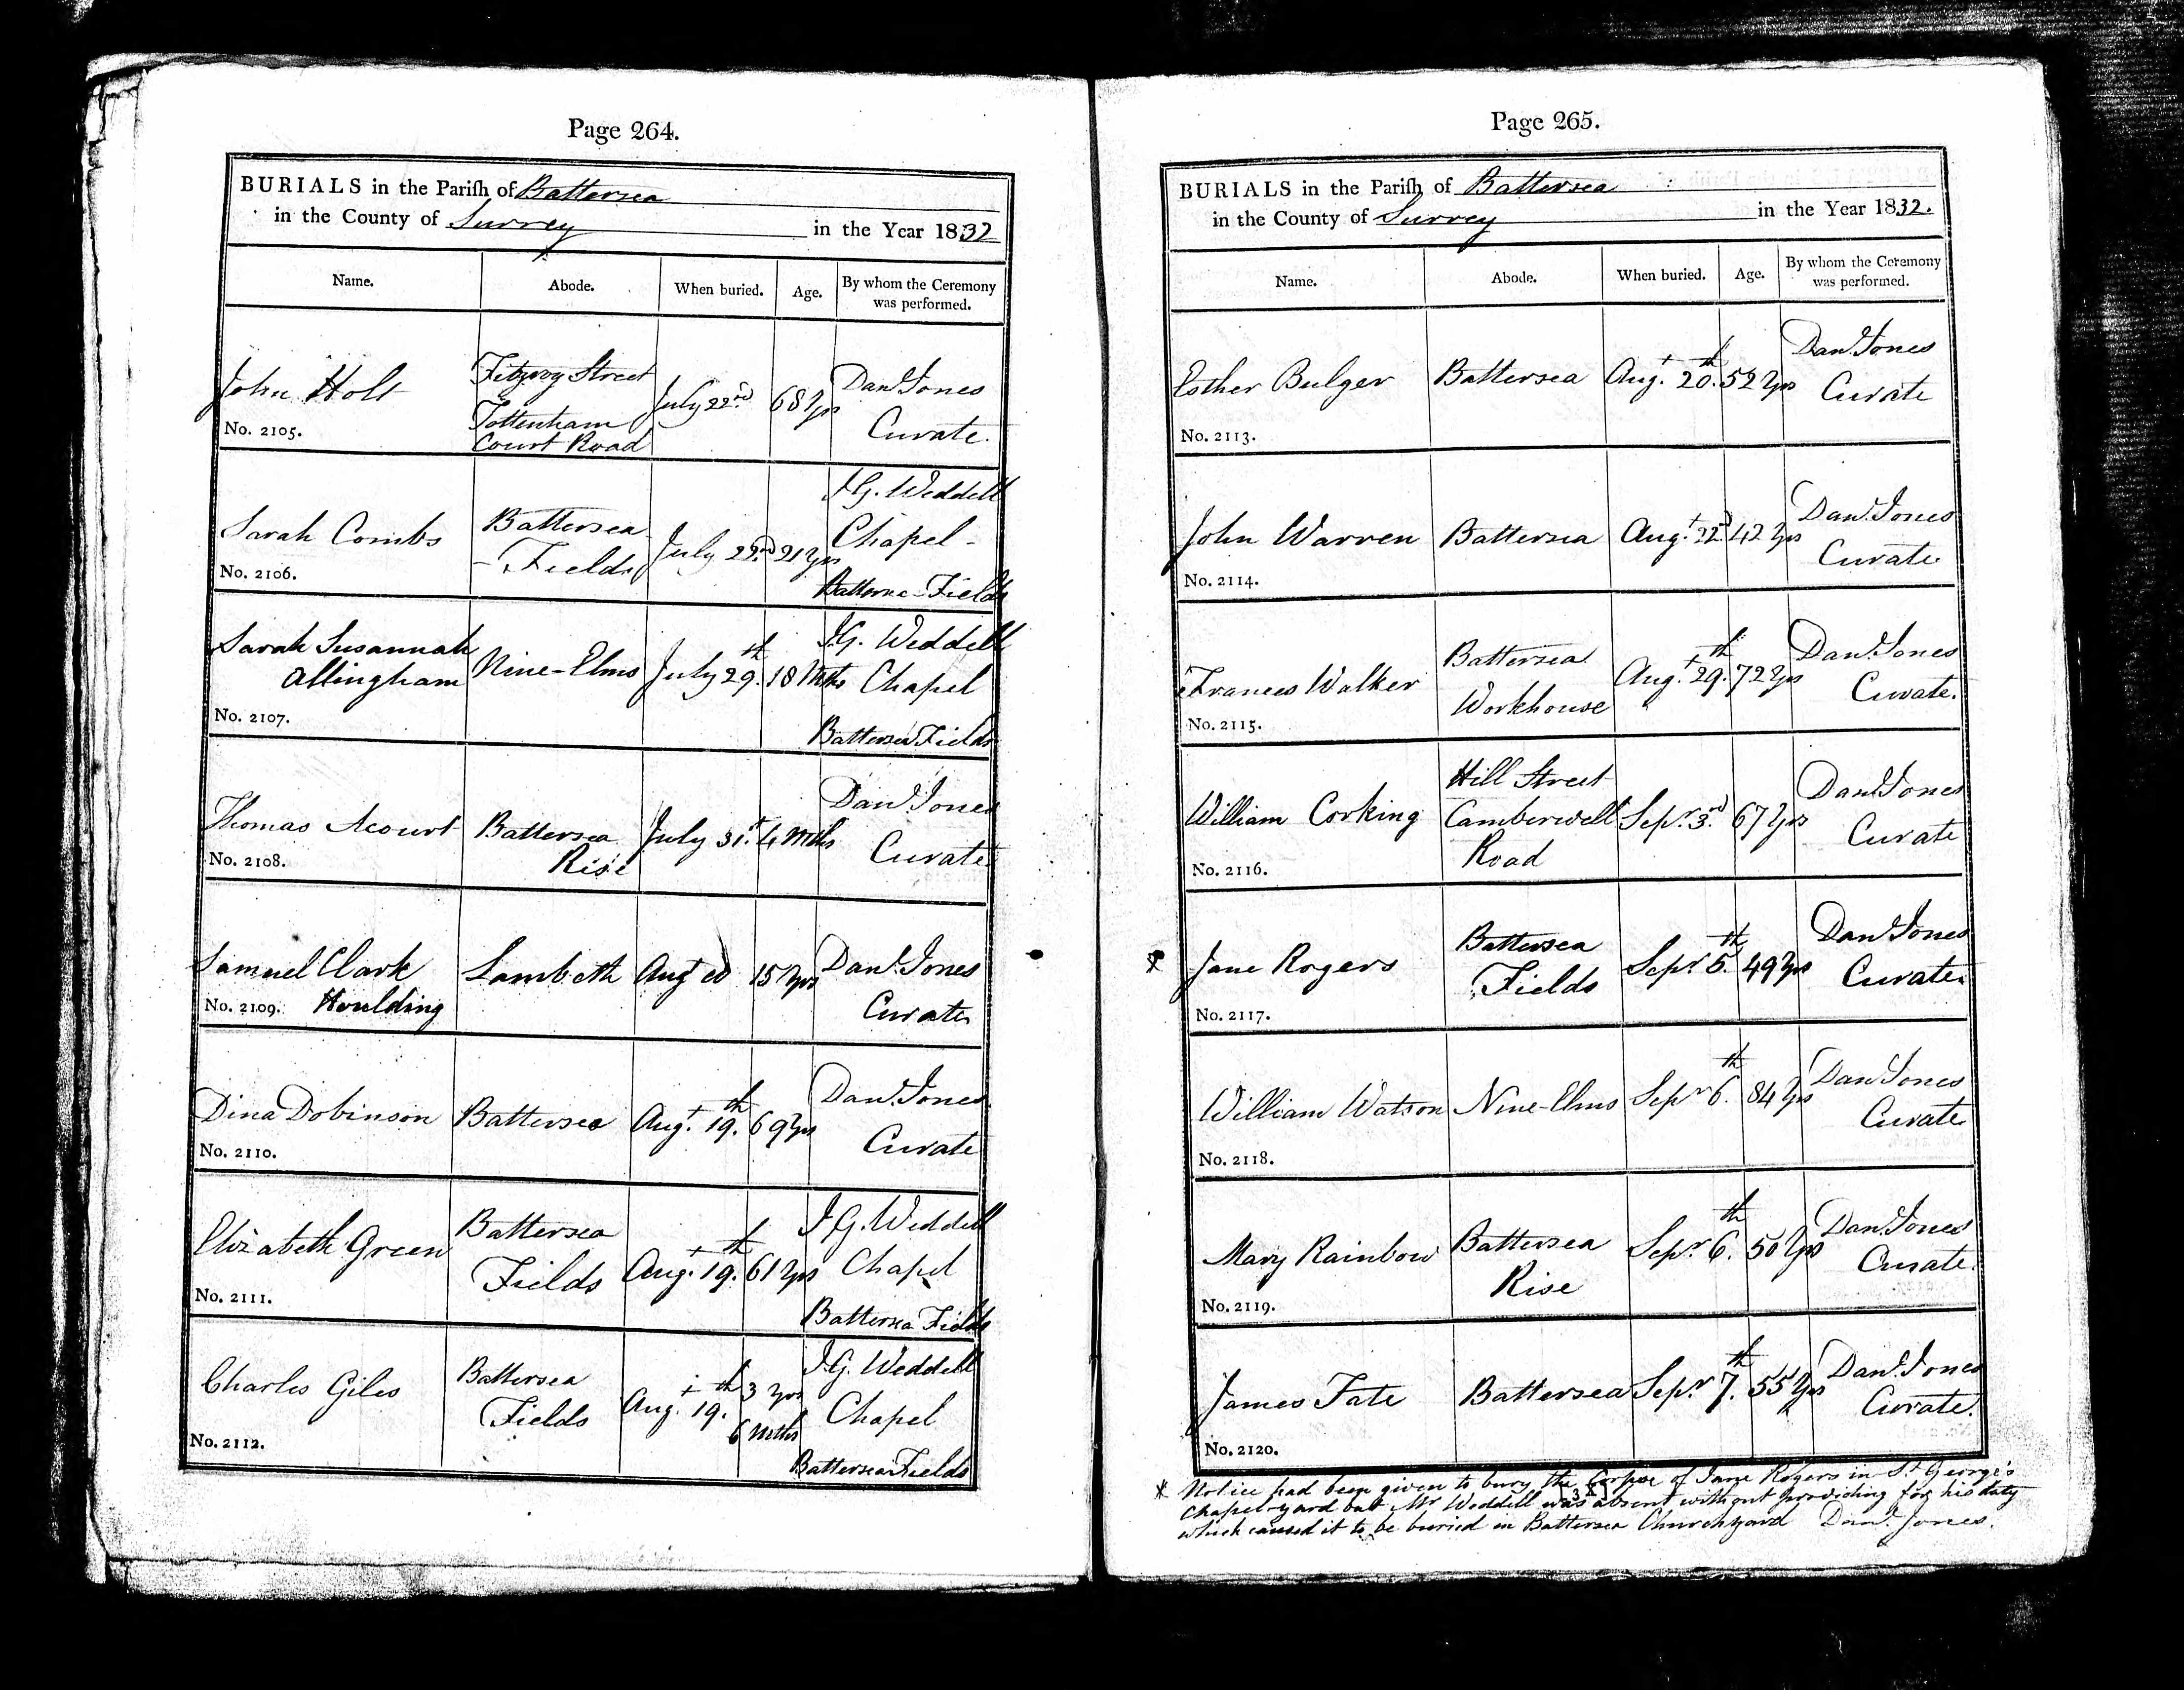 Page 264.
BURIALS in the Parish of Battersea
in the County of Surrey in the Year 1832
Name. Abode. When buried. Age. By whom the Ceremony was performed.
John Holt
No. 2105.
Fitzroy Street
Tottenham
Court Road
July 22nd 68 Yrs
Danl. Jones
Curate.
Sarah Combs
No. 2106.
Battersea
- Fields
July 22nd 21 yrs
J.G. Weddell
Chapel -
Battersea - Fields
Sarah Susannah
Allingham
No. 2107.
Nine-Elms
July 29th. 18 Mths
J.G. Weddell
Chapel
Battersea Fields
Thomas Acourt
No. 2108.
Battersea
Rise
July 31st. 4 Mths
Danl. Jones
Curate
Samuel Clark
No. 2109. Houlding
Lambeth
Augt 15 Yrs
Danl. Jones
Curate
Dina Dobinson
No. 2110.
Battersea
Augt. 19th. 69 Yrs
Danl. Jones
Curate
Elizabeth Green
No. 2111.
Battersea
Fields
Augt. 19th. 61 Yrs
J.G. Weddell
Chapel
Battersea Fields
Charles Giles
No. 2112.
Battersea
Fields
Augt. 19th. 3 Yrs
6 Mths
J.G. Weddell
Chapel
Battersea Fields
Page 265.
BURIALS in the Parish of Battersea
in the County of Surrey in the Year 1832.
Name. Abode. When buried. Age. By whom the Ceremony was performed.
Esther Bulger
No. 2113.
Battersea
Augt. 20th. 52 Yrs
Danl. Jones
Curate
John Warren
No. 2114.
Battersea
Augt. 22nd 42 Yrs
Danl. Jones
Curate
Frances Walker
No. 2115.
Battersea
Workhouse
Augt. 29th. 72 Yrs
Danl. Jones
Curate.
William Corking
No. 2116.
Hill Street
Camberwell
Road
Sepr. 3rd. 67 Yrs
Danl. Jones
Curate
* Jane Rogers
No. 2117.
Battersea
Fields
Sepr. 5th. 49 Yrs
Danl. Jones
Curate.
William Watson
No. 2118.
Nine-Elms
Sepr. 6th. 84 Yrs
Danl. Jones
Curate
Mary Rainbow
No. 2119.
Battersea
Rise
Sepr. 6th. 50 Yrs
Danl. Jones
Curate.
James Tate
No. 2120.
Battersea
Sepr. 7th. 55 Yrs
Danl. Jones
Curate.
* Notice had been given to bury the Corpse of Jane Rogers in St. George's
Chapel-yard but Mr Weddell was absent without providing for his duty
which caused it to be buried in Battersea Churchyard Danl. Jones.